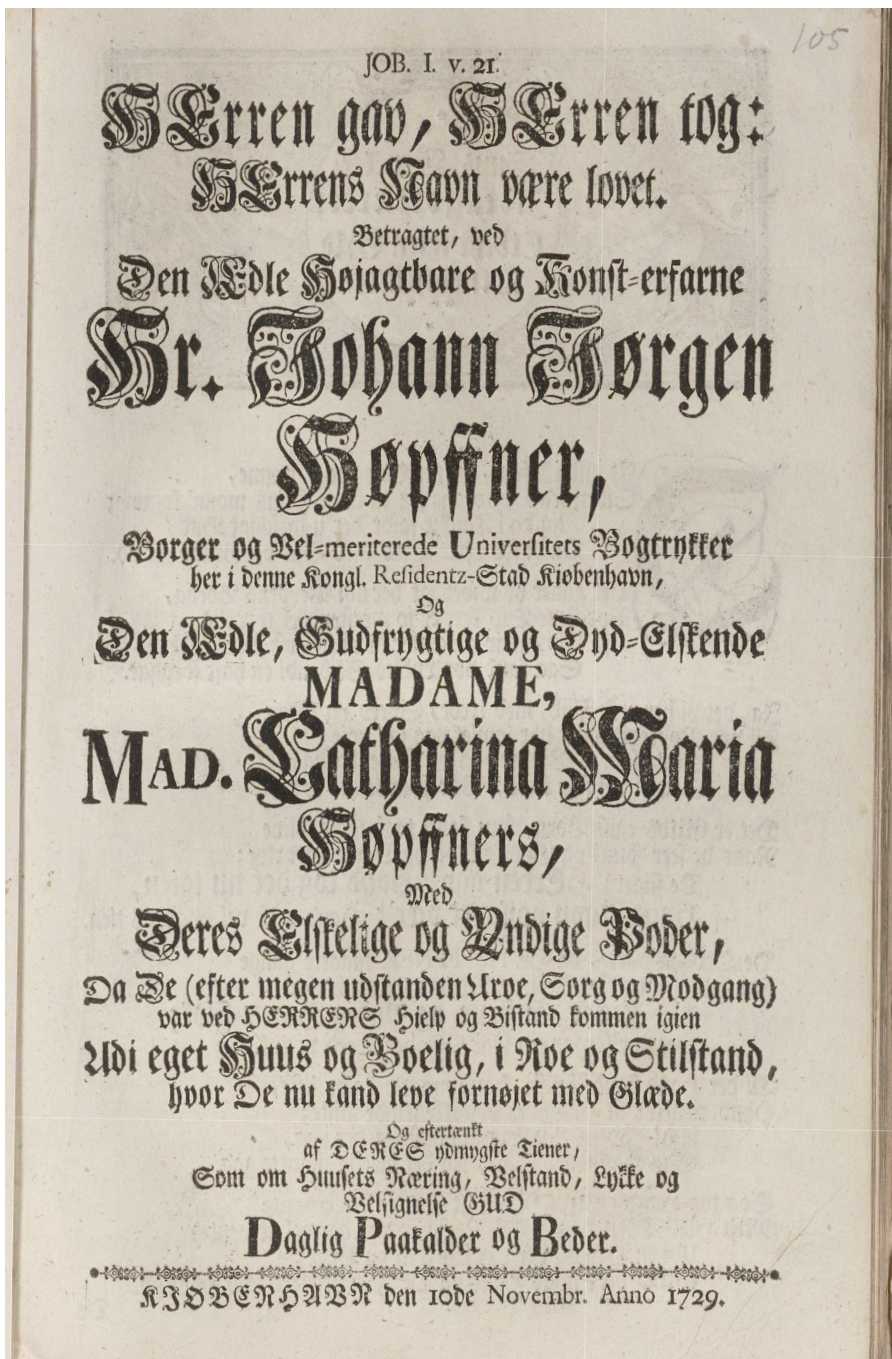 105
JOB. I. v. 21.
HErren gav, HErren tog:
HErrens Navn være lovet.
Betragtet, ved
Den Ædle Højagtbare og Konst-erfarne
Hr. Johann Jørgen
Høpffner,
Borger og Vel-meriterede Universitets Bogtrykker
her i denne Kongl. Residentz-Stad Kiøbenhavn,
Og
Den Ædle, Gudfrygtige og Dyd-Elskende
MADAME,
MAD. Catharina Maria
Høpffners,
Med
Deres Elskelige og Yndige Poder,
Da De (efter megen udstanden Uroe, Sorg og Modgang)
var ved HERRENS Hielp og Bistand kommen igien
Udi eget Huus og Boelig, i Roe og Stilstand,
hvor De nu kand leve fornøjet med Glæde.
Og eftertænkt
af DERES ydmygste Tiener,
Som om Huusets Næring, Velstand, Lykke og
Velsignelse GUD
Daglig Paakalder og Beder.
KIØBENHAVN den 10de Novembr. Anno 1729.